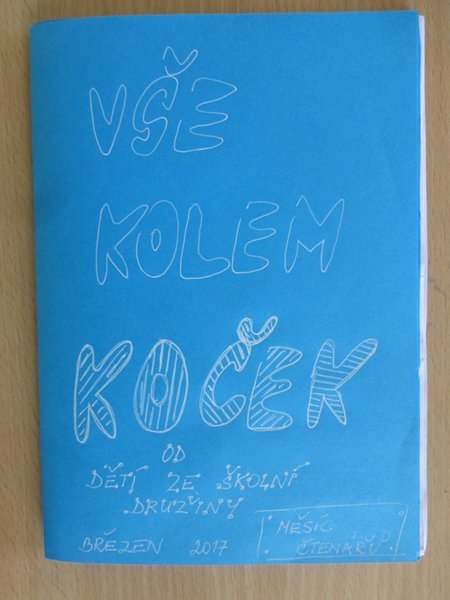 VŠE
KOLEM
KOČEK
OD
DĚTÍ ZE ŠKOLNÍ
DRUŽINY
BŘEZEN 2017
MĚSÍC
ČTENÁŘŮ